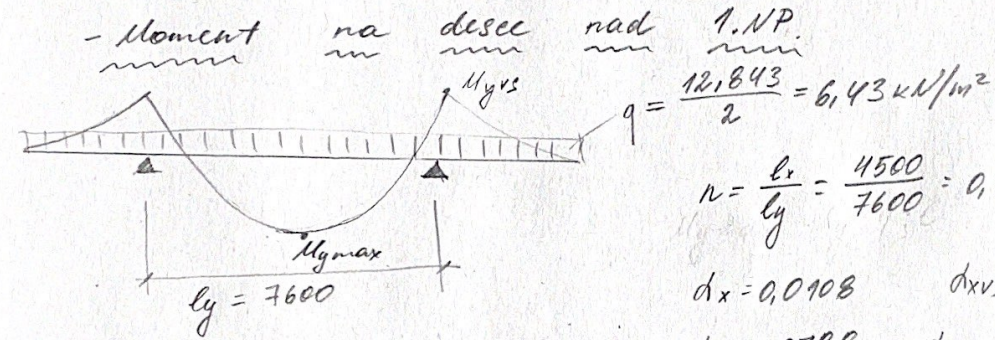 - Moment na desce nad 1.NP.
Myvs
q = 12,843 / 2 = 6,43 kN/m²
n = lx / ly = 4500 / 7600 = 0,
Mymax
ly = 7600
αx = 0,0108 αxvs